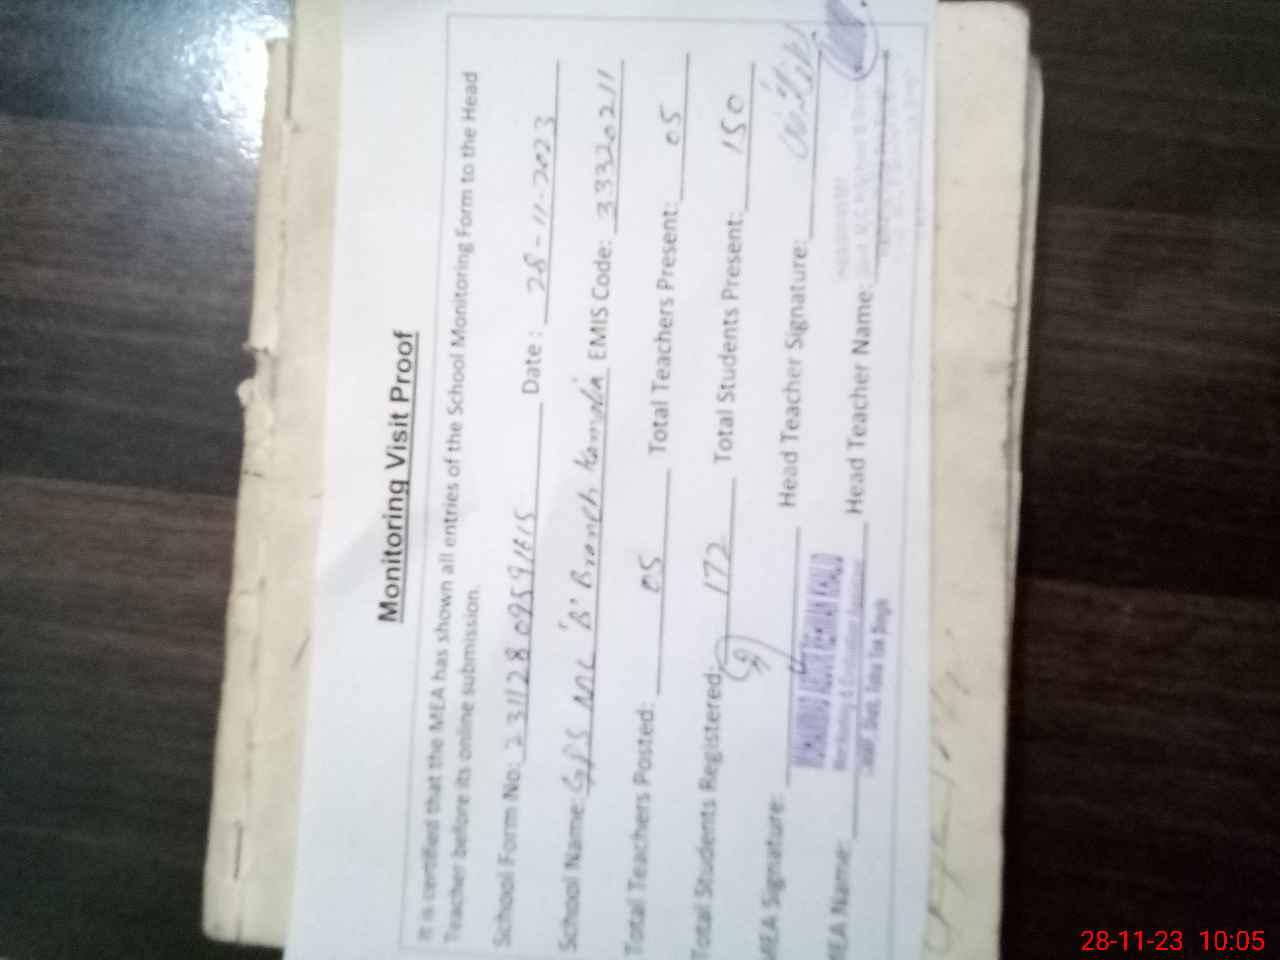 Monitoring Visit Proof
It is certified that the MEA has shown all entries of the School Monitoring Form to the Head
Teacher before its online submission.
School Form No: Date : 28-11-2023
School Name: GPS MC 'B' Branch Kamalia EMIS Code: 33320211
Total Teachers Posted: 05 Total Teachers Present: 05
Total Students Registered: 172 Total Students Present: 150
MEA Signature: Head Teacher Signature:
MEA Name: Head Teacher Name:
Monitoring & Evaluation
Distt. Toba Tek Singh
28-11-23 10:05